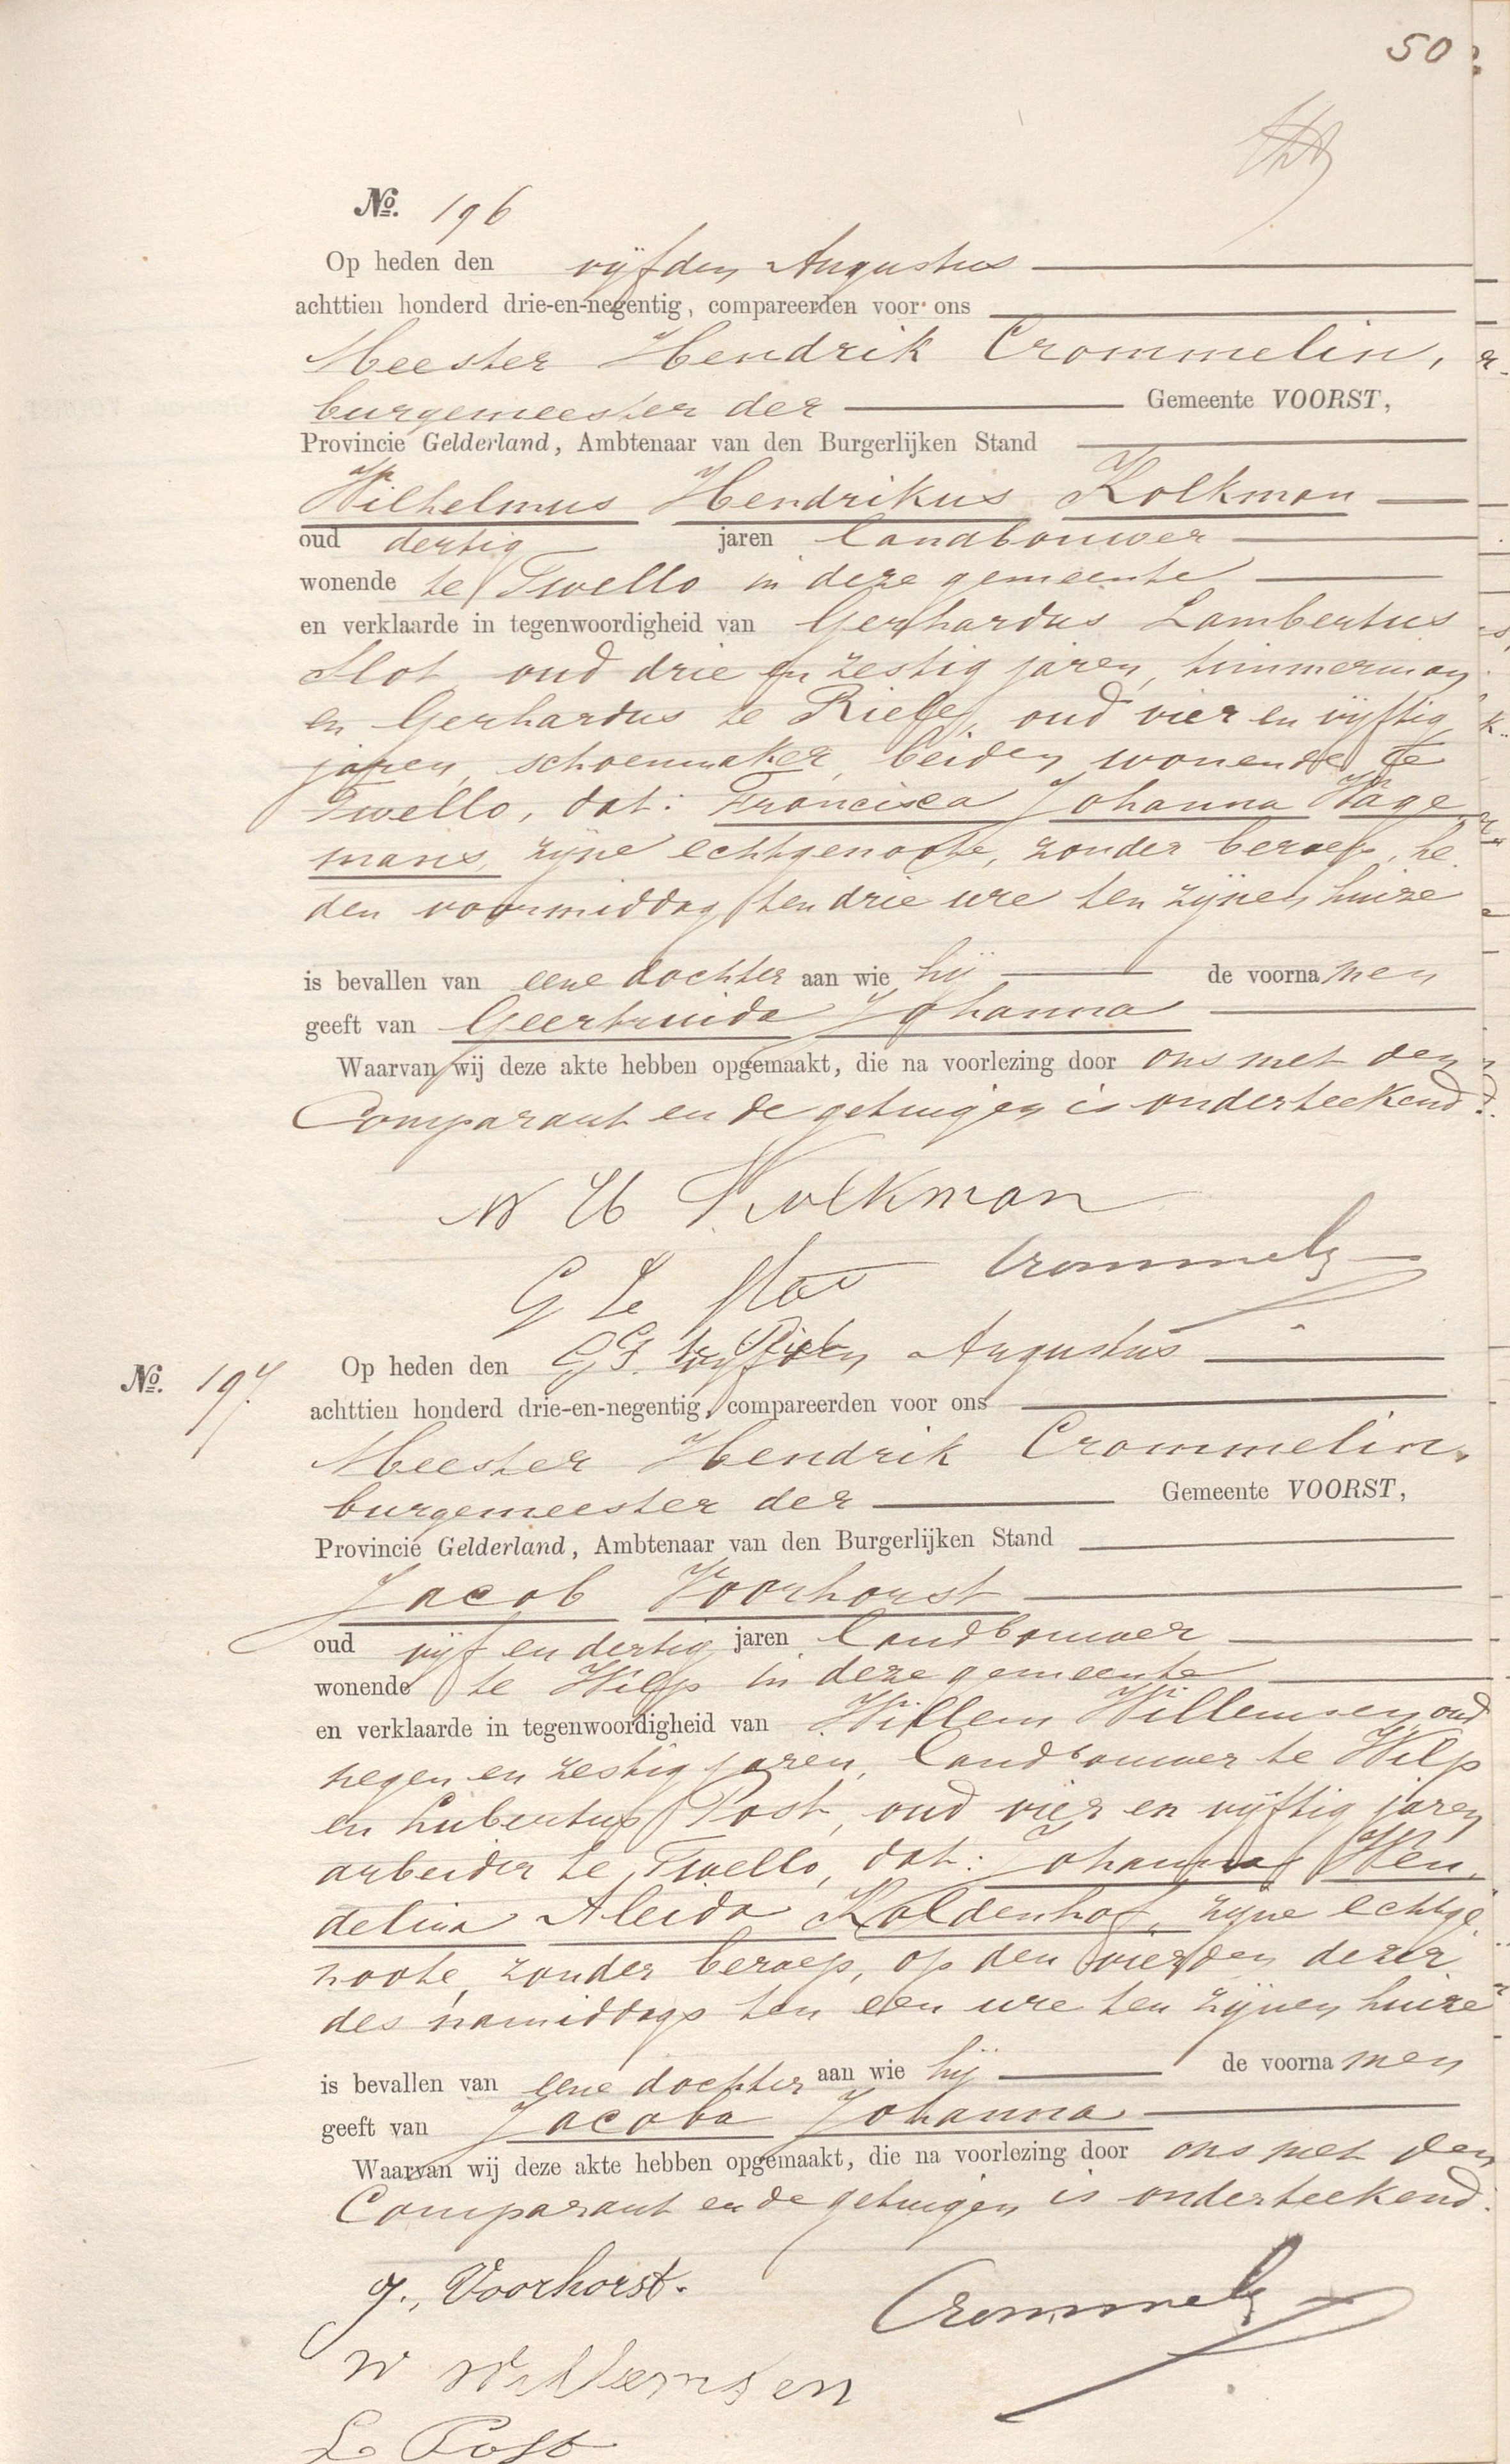 50
No. 196
Op heden den vijfden Augustus
achttien honderd drie-en-negentig, compareerden voor ons
Meester Hendrik Crommelin,
burgemeester der Gemeente VOORST,
Provincie Gelderland, Ambtenaar van den Burgerlijken Stand
Wilhelmus Hendrikus Kolkman
oud dertig jaren landbouwer
wonende te Twello in deze gemeente
en verklaarde in tegenwoordigheid van Gerhardus Lambertus
Slot, oud drie en zestig jaren, timmerman
en Gerhardus te Riele, oud vier en vijftig
jaren, schoenmaker, beiden wonende te
Twello, dat: Francisca Johanna Wage
mans, zijne echtgenoote, zonder beroep, he
den voormiddag ten drie ure ten zijnen huize
is bevallen van eene dochter aan wie hij de voornamen
geeft van Geertruida Johanna
Waarvan wij deze akte hebben opgemaakt, die na voorlezing door ons met den
Comparant en de getuigen is onderteekend.
W H Kolkman
G L Slot Crommelin
G J te Riele
No. 197.
Op heden den vijfden Augustus
achttien honderd drie-en-negentig, compareerden voor ons
Meester Hendrik Crommelin,
burgemeester der Gemeente VOORST,
Provincie Gelderland, Ambtenaar van den Burgerlijken Stand
Jacob Voorhorst
oud vijf en dertig jaren landbouwer
wonende te Wilp in deze gemeente
en verklaarde in tegenwoordigheid van Willem Willemsen, oud
negen en zestig jaren, landbouwer te Wilp
en Lubertus Post, oud vier en vijftig jaren
arbeider te Twello, dat: Johanna Wen
delina Aleida Koldenhof, zijne echtge
noote, zonder beroep, op den vierden dezer
des namiddags ten een ure ten zijnen huize
is bevallen van eene dochter aan wie hij de voornamen
geeft van Jacoba Johanna
Waarvan wij deze akte hebben opgemaakt, die na voorlezing door ons met den
Comparant en de getuigen is onderteekend.
J., Voorhorst. Crommelin
W Willemsen
L. Post